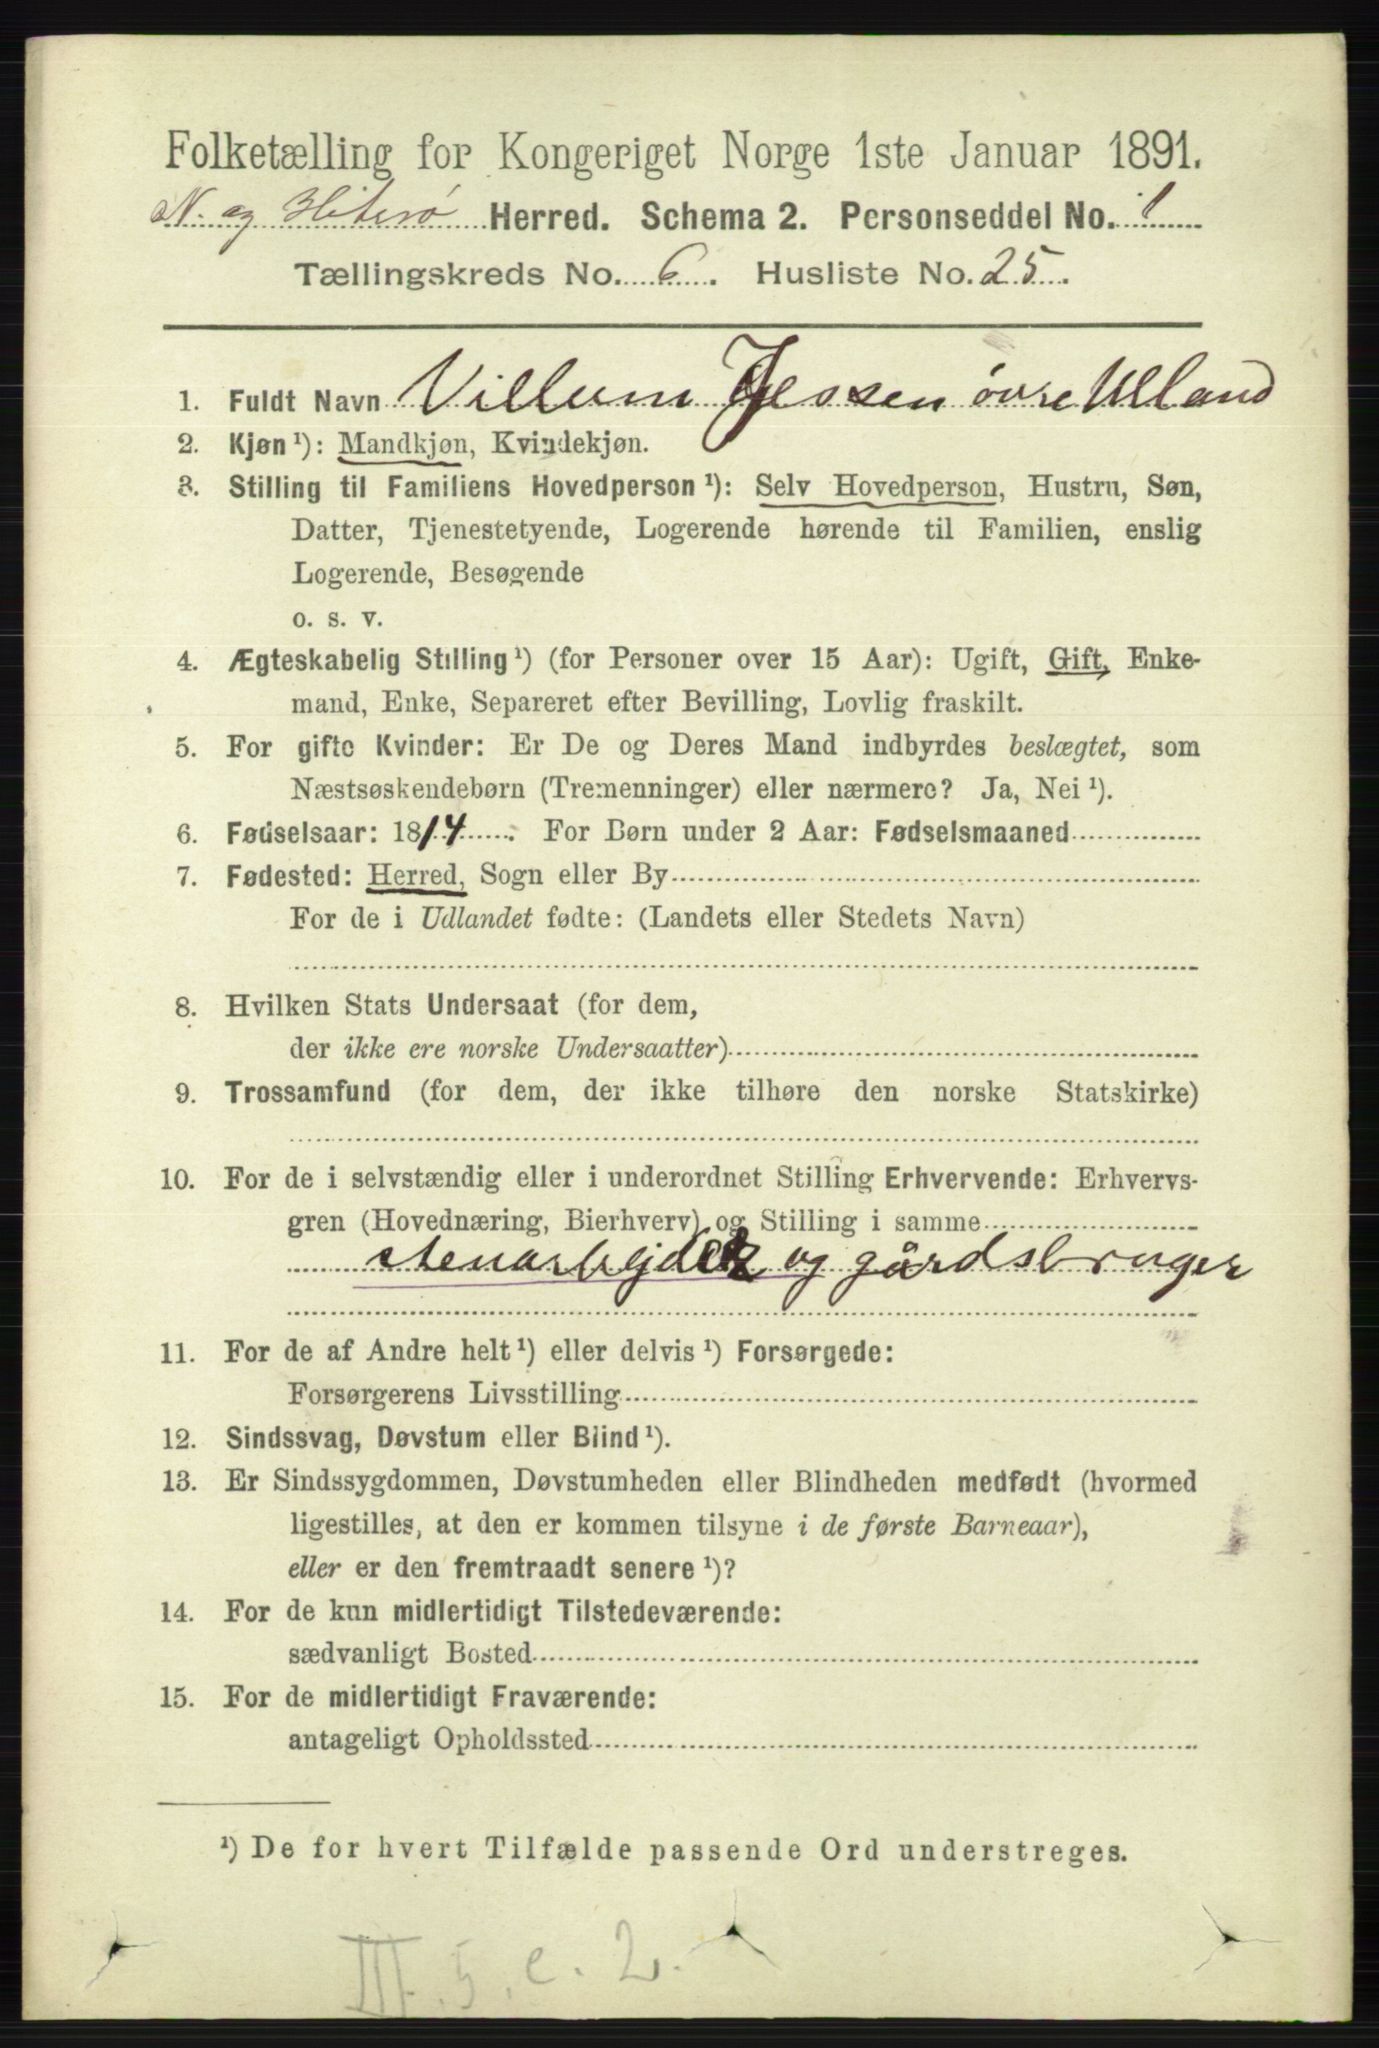 Folketælling for Kongeriget Norge 1ste Januar 1891.
N. og Hiterø Herred. Schema 2. Personseddel No. 1
Tællingskreds No. 6. Husliste No. 25.
1. Fuldt Navn Villum Jessen øvre Ulland
2. Kjøn ¹): Mandkjøn, Kvindekjøn.
3. Stilling til Familiens Hovedperson ¹): Selv Hovedperson, Hustru, Søn,
Datter, Tjenestetyende, Logerende hørende til Familien, enslig
Logerende, Besøgende
o. s. v.
4. Ægteskabelig Stilling ¹) (for Personer over 15 Aar): Ugift, Gift, Enke-
mand, Enke, Separeret efter Bevilling, Lovlig fraskilt.
5. For gifte Kvinder: Er De og Deres Mand indbyrdes beslægtet, som
Næstsøskendebørn (Tremenninger) eller nærmere? Ja, Nei ¹).
6. Fødselsaar: 1814. For Børn under 2 Aar: Fødselsmaaned
7. Fødested: Herred, Sogn eller By
For de i Udlandet fødte: (Landets eller Stedets Navn)
8. Hvilken Stats Undersaat (for dem,
der ikke ere norske Undersaatter)
9. Trossamfund (for dem, der ikke tilhøre den norske Statskirke)
10. For de i selvstændig eller i underordnet Stilling Erhvervende: Erhvervs-
gren (Hovednæring, Bierhverv) og Stilling i samme
stenarbejder og gårdsbruger
11. For de af Andre helt ¹) eller delvis ¹) Forsørgede:
Forsørgerens Livsstilling
12. Sindssvag, Døvstum eller Blind ¹).
13. Er Sindssygdommen, Døvstumheden eller Blindheden medfødt (hvormed
ligestilles, at den er kommen tilsyne i de første Barneaar),
eller er den fremtraadt senere ¹)?
14. For de kun midlertidigt Tilstedeværende:
sædvanligt Bosted
15. For de midlertidigt Fraværende:
antageligt Opholdssted
¹) De for hvert Tilfælde passende Ord understreges.
III. 5. c. 2.